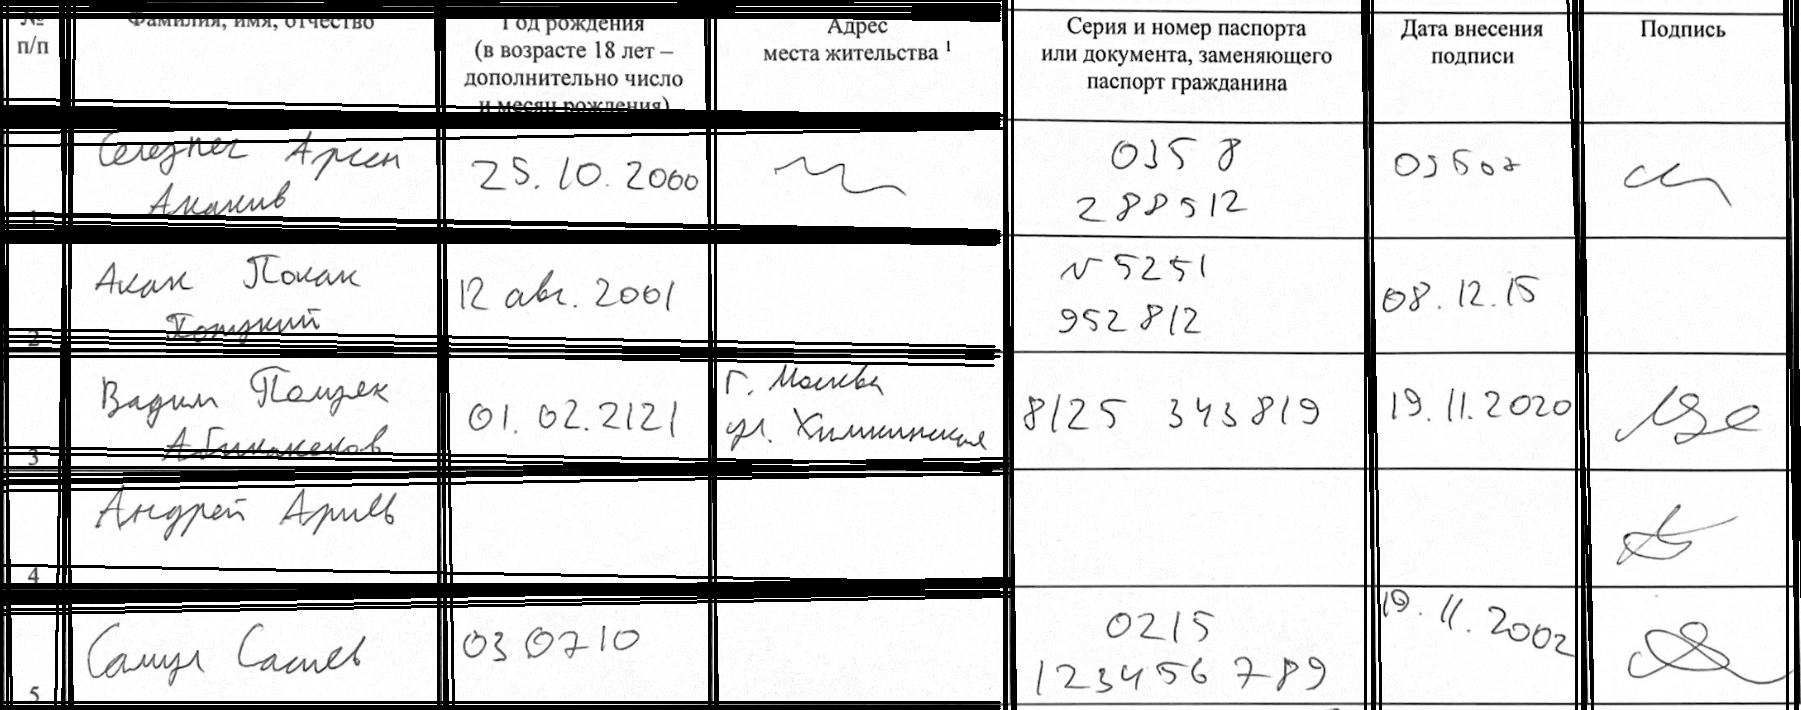 № п/п
Фамилия, имя, отчество
Год рождения
(в возрасте 18 лет –
дополнительно число
и месяц рождения)
Адрес
места жительства 1
Серия и номер паспорта
или документа, заменяющего
паспорт гражданина
Дата внесения
подписи
Подпись
1
Арсен
25.10.2000
0358
288512
2
Акак Покак
12 авг. 2001
N 5251
952812
08.12.15
3
Вадим
01.02.2121
г. Москва
ул. Химкинская
8125 343819
19.11.2020
4
Андрей
5
030710
0215
123456 789
19.11.2002